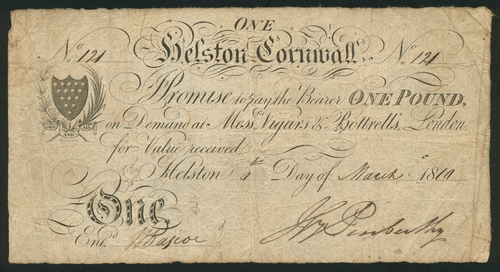 ONE
No. 121 Helston Cornwall. No. 121
Promise to pay the Bearer ONE POUND,
on Demand at Messrs. Vigars & Co. Bottrell's, London
for Value received
Helston 1st Day of March 1810
One
Entd.
ONE AND ALL